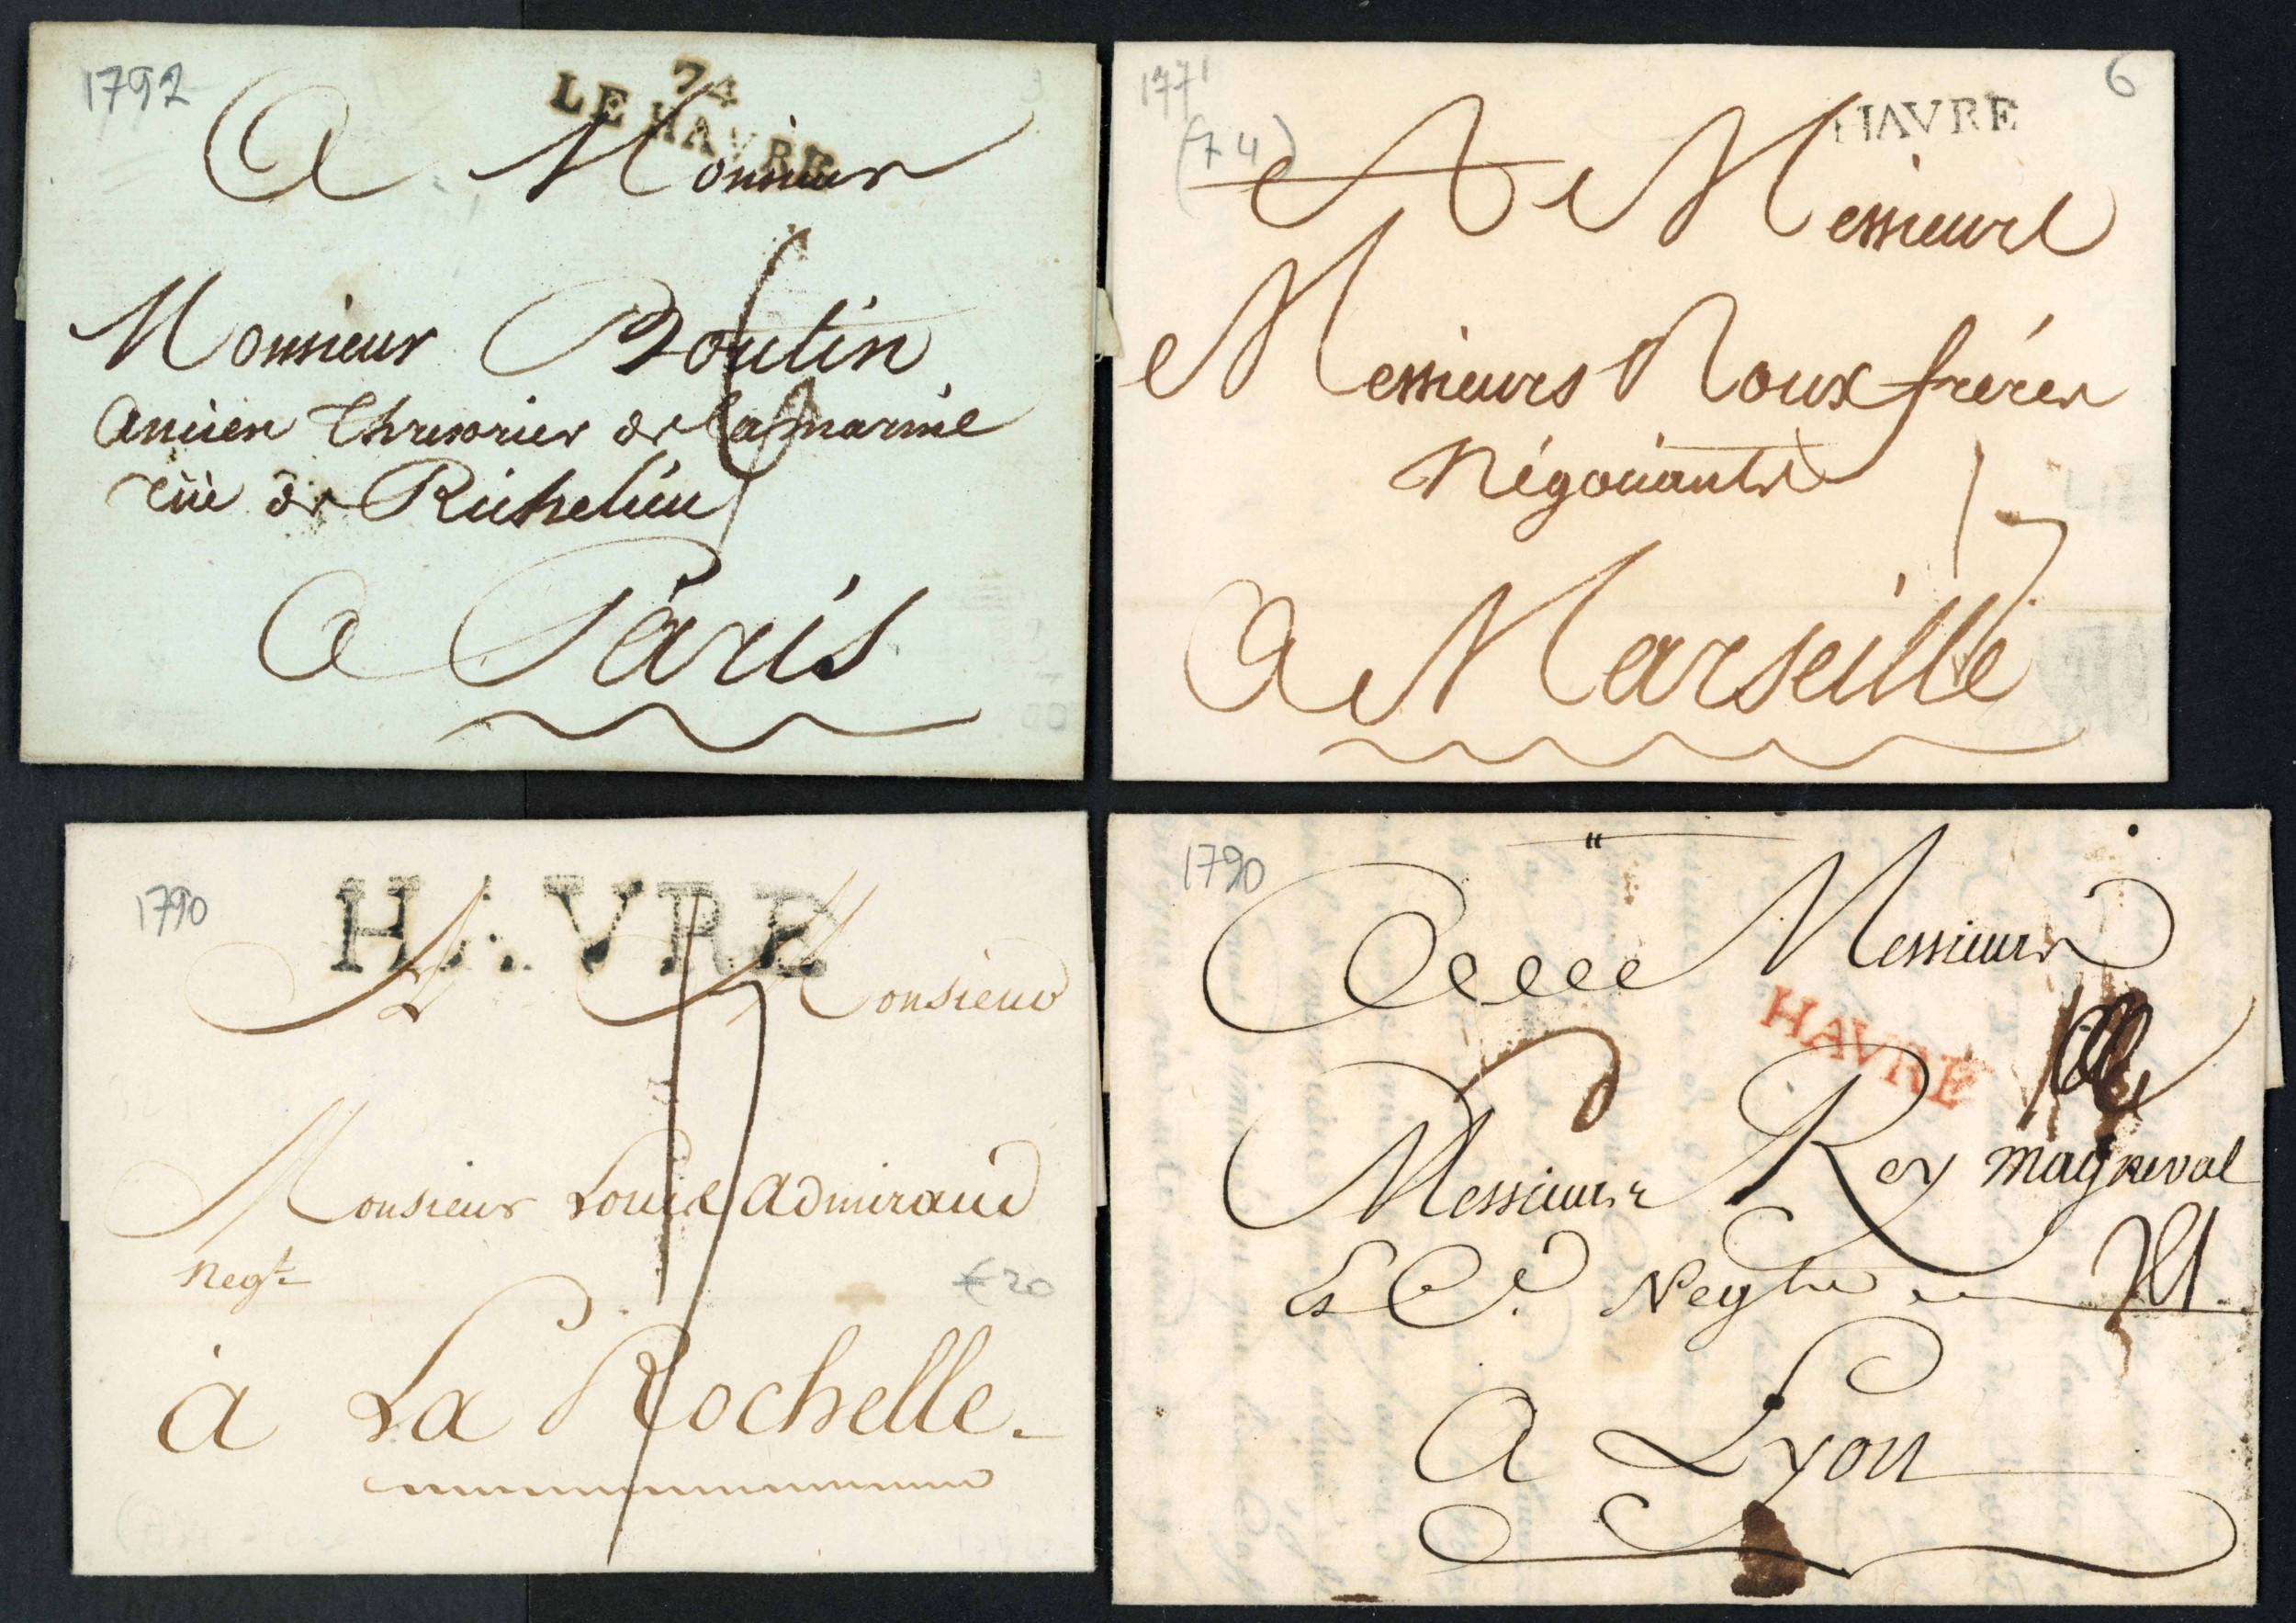 1792
74
LE HAVRE
A Monsieur
Monsieur Boutin
ancien thresorier de la marine
rüe de Richelieu
a Paris
1771
6
HAVRE
(74)
A Messieurs
Messieurs Roux freres
Négociants
17
A Marseille
1790
HAVRE
A Monsieur
17
Monsieur Louis Admiraud
Negt
€20
à La Rochelle.
1790
A Messieurs
HAVRE
Messieurs Rey Magneval
& Ce. Negts
A Lyon